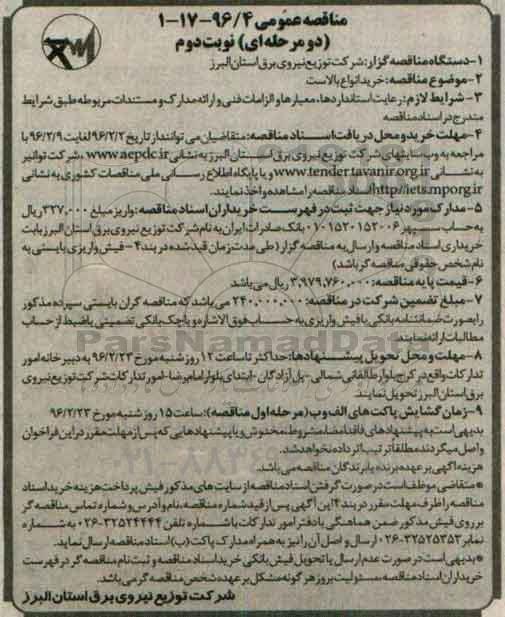 مناقصه عمومی ۹۶/۴-۱۷-۱
(دو مرحله ای) نوبت دوم
۱-دستگاه مناقصه گزار: شرکت توزیع نیروی برق استان البرز
۲-موضوع مناقصه: خرید انواع بالاست
۳- شرایط لازم: رعایت استانداردها، معیارها و الزامات فنی و ارائه مدارک و مستندات مربوطه طبق شرایط
مندرج در اسناد مناقصه
۴-مهلت خرید و محل دریافت اسناد مناقصه: متقاضیان می توانند از تاریخ ۹۶/۲/۲ لغایت ۹۶/۲/۹ با
مراجعه به وب سایتهای شرکت توزیع نیروی برق استان البرز به نشانی www.aepdc.ir ، شرکت توانیر
به نشانی www.tender.tavanir.org.ir و یا پایگاه اطلاع رسانی ملی مناقصات کشوری به نشانی
http://iets.mporg.ir اسناد مناقصه را مشاهده و اخذ نمایند.
۵- مدارک مورد نیاز جهت ثبت در فهرست خریداران اسناد مناقصه: واریز مبلغ ۳۲۷,۰۰۰ ریال
به حساب سپهر ۰۱۰۱۵۲۰۱۵۲۰۰۶ بانک صادرات ایران به نام شرکت توزیع نیروی برق استان البرز بابت
خریداری اسناد مناقصه و ارسال به مناقصه گزار (طی مدت زمان قید شده در بند ۴- فیش واریزی بایستی به
نام شخص حقوقی مناقصه گر باشد)
۶-قیمت پایه مناقصه: ۳,۹۷۹,۷۶۰,۰۰۰ ریال می باشد
۷- مبلغ تضمین شرکت در مناقصه: ۲۴۰,۰۰۰,۰۰۰ می باشد که مناقصه گران بایستی سپرده مذکور
را بصورت ضمانتنامه بانکی یا فیش واریزی به حساب فوق الاشاره و یا چک بانکی تضمینی یا ضبط از حساب
مطالبات ارائه نمایند
۸- مهلت و محل تحویل پیشنهادها: حداکثر تا ساعت ۱۲ روز شنبه مورخ ۹۶/۲/۲۳ به دبیرخانه امور
تدارکات واقع در کرج بلوار طالقانی شمالی-پل آزادگان-ابتدای بلوار امام رضا-امور تدارکات شرکت توزیع نیروی
برق استان البرز تحویل نمایند.
۹-زمان گشایش پاکت های الف و ب (مرحله اول مناقصه): ساعت ۱۵ روز شنبه مورخ ۹۶/۲/۲۳
بدیهی است به پیشنهادهای فاقد امضا، مشروط، مخدوش و یا پیشنهادهایی که پس از مهلت مقرر در این فراخوان
واصل میگردند مطلقاً ترتیب اثر داده نخواهد شد.
هزینه آگهی بر عهده برنده یا برندگان مناقصه می باشد.
* متقاضی موظف است در صورت گرفتن اسناد مناقصه از سایت های مذکور فیش پرداخت هزینه خرید اسناد
مناقصه را ظرف مهلت مقرر در بند ۴ این آگهی پس از قید شماره مناقصه، نام و آدرس و شماره تماس مناقصه گر
بر روی فیش مذکور ضمن هماهنگی با دفتر امور تدارکات با شماره تلفن ۳۲۵۲۴۴۴۴-۰۲۶ به شماره
نمابر ۳۲۵۲۵۳۵۳-۰۲۶ ارسال و اصل آن را نیز به همراه مدارک پاکت (ب) اسناد مناقصه ارسال نماید.
* بدیهی است در صورت عدم ارسال یا تحویل فیش بانکی خرید اسناد مناقصه و ثبت نام مناقصه گر در فهرست
خریداران اسناد مناقصه، مسئولیت بروز هر گونه مشکل بر عهده شخص مناقصه گر می باشد.
شرکت توزیع نیروی برق استان البرز
ParsNamadData